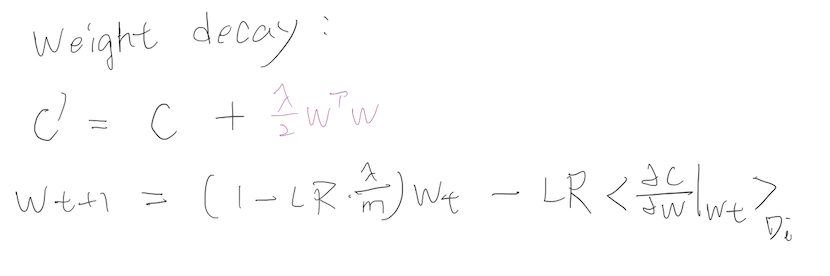 Weight decay:
C' = C + λ/2 wᵀw
w_{t+1} = (1 - LR · λ/m) w_t - LR < ∂C/∂w |_{w_t} >_{D_i}